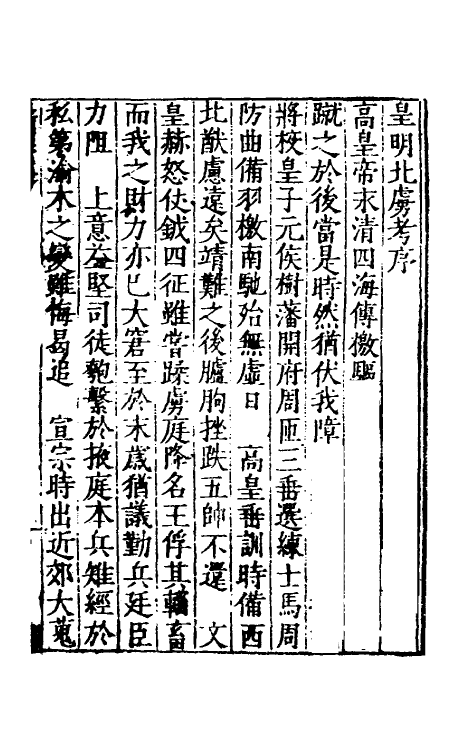 皇明北虜考序
高皇帝末清四海傳檄驅
蹴之於後當是時然猶伏我障
將校皇子元侯樹藩開府周匝三垂選練士馬周
防曲備羽檄南馳殆無虛日　高皇垂訓時備西
北猷慮遠矣靖難之後臚朐挫跌五帥不還　文
皇赫怒仗鉞四征雖嘗蹂虜庭降名王俘其輜畜
而我之財力亦已大窘至於末歲猶議勤兵廷臣
力阻　上意益堅司徒匏繫於掖庭本兵雉經於
私第渝木之變雖悔曷追　宣宗時出近郊大蒐